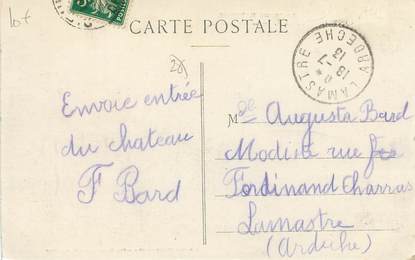 lot
CARTE POSTALE
20
LAMASTRE ARDECHE
18 -7
13
Envoie entrée
du chateau
F Bard
Melle Augusta Bard
Modiste rue
Ferdinand Charras
Lamastre
(Ardèche)